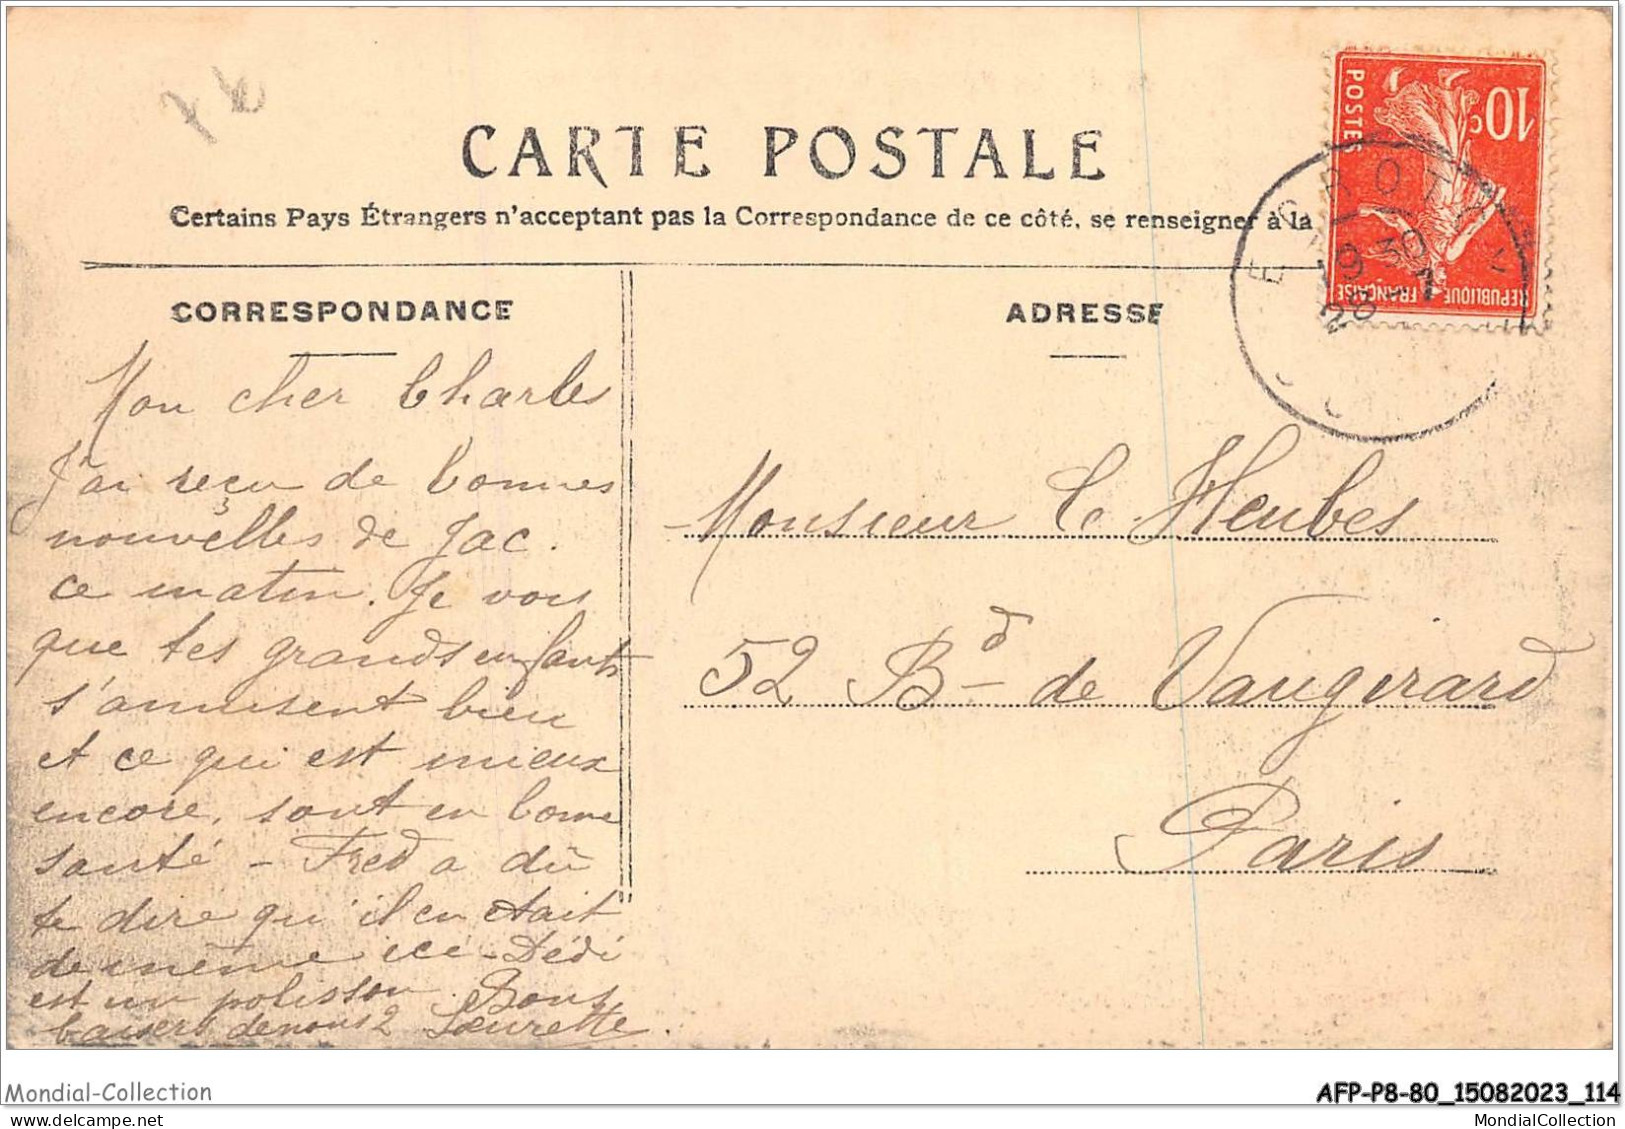 CARTE POSTALE
Certains Pays Étrangers n'acceptant pas la Correspondance de ce côté, se renseigner à la
CORRESPONDANCE
ADRESSE
POSTES
10c
REPUBLIQUE FRANÇAISE
Mon cher Charles
J'ai reçu de bonnes
nouvelles de Jac.
ce matin. Je vois
que tes grands enfants
s'amusent bien
et ce qui est mieux
encore, sont en bonne
santé – Fred a dû
te dire qu'il en était
de même ici – Dédé
est un polisson. Bons
baisers de nous 2 Laurette.
Monsieur C. Heubes
52 Bd de Vaugirard
Paris
Mondial-Collection
AFP-P8-80_15082023_114
MondialCollection